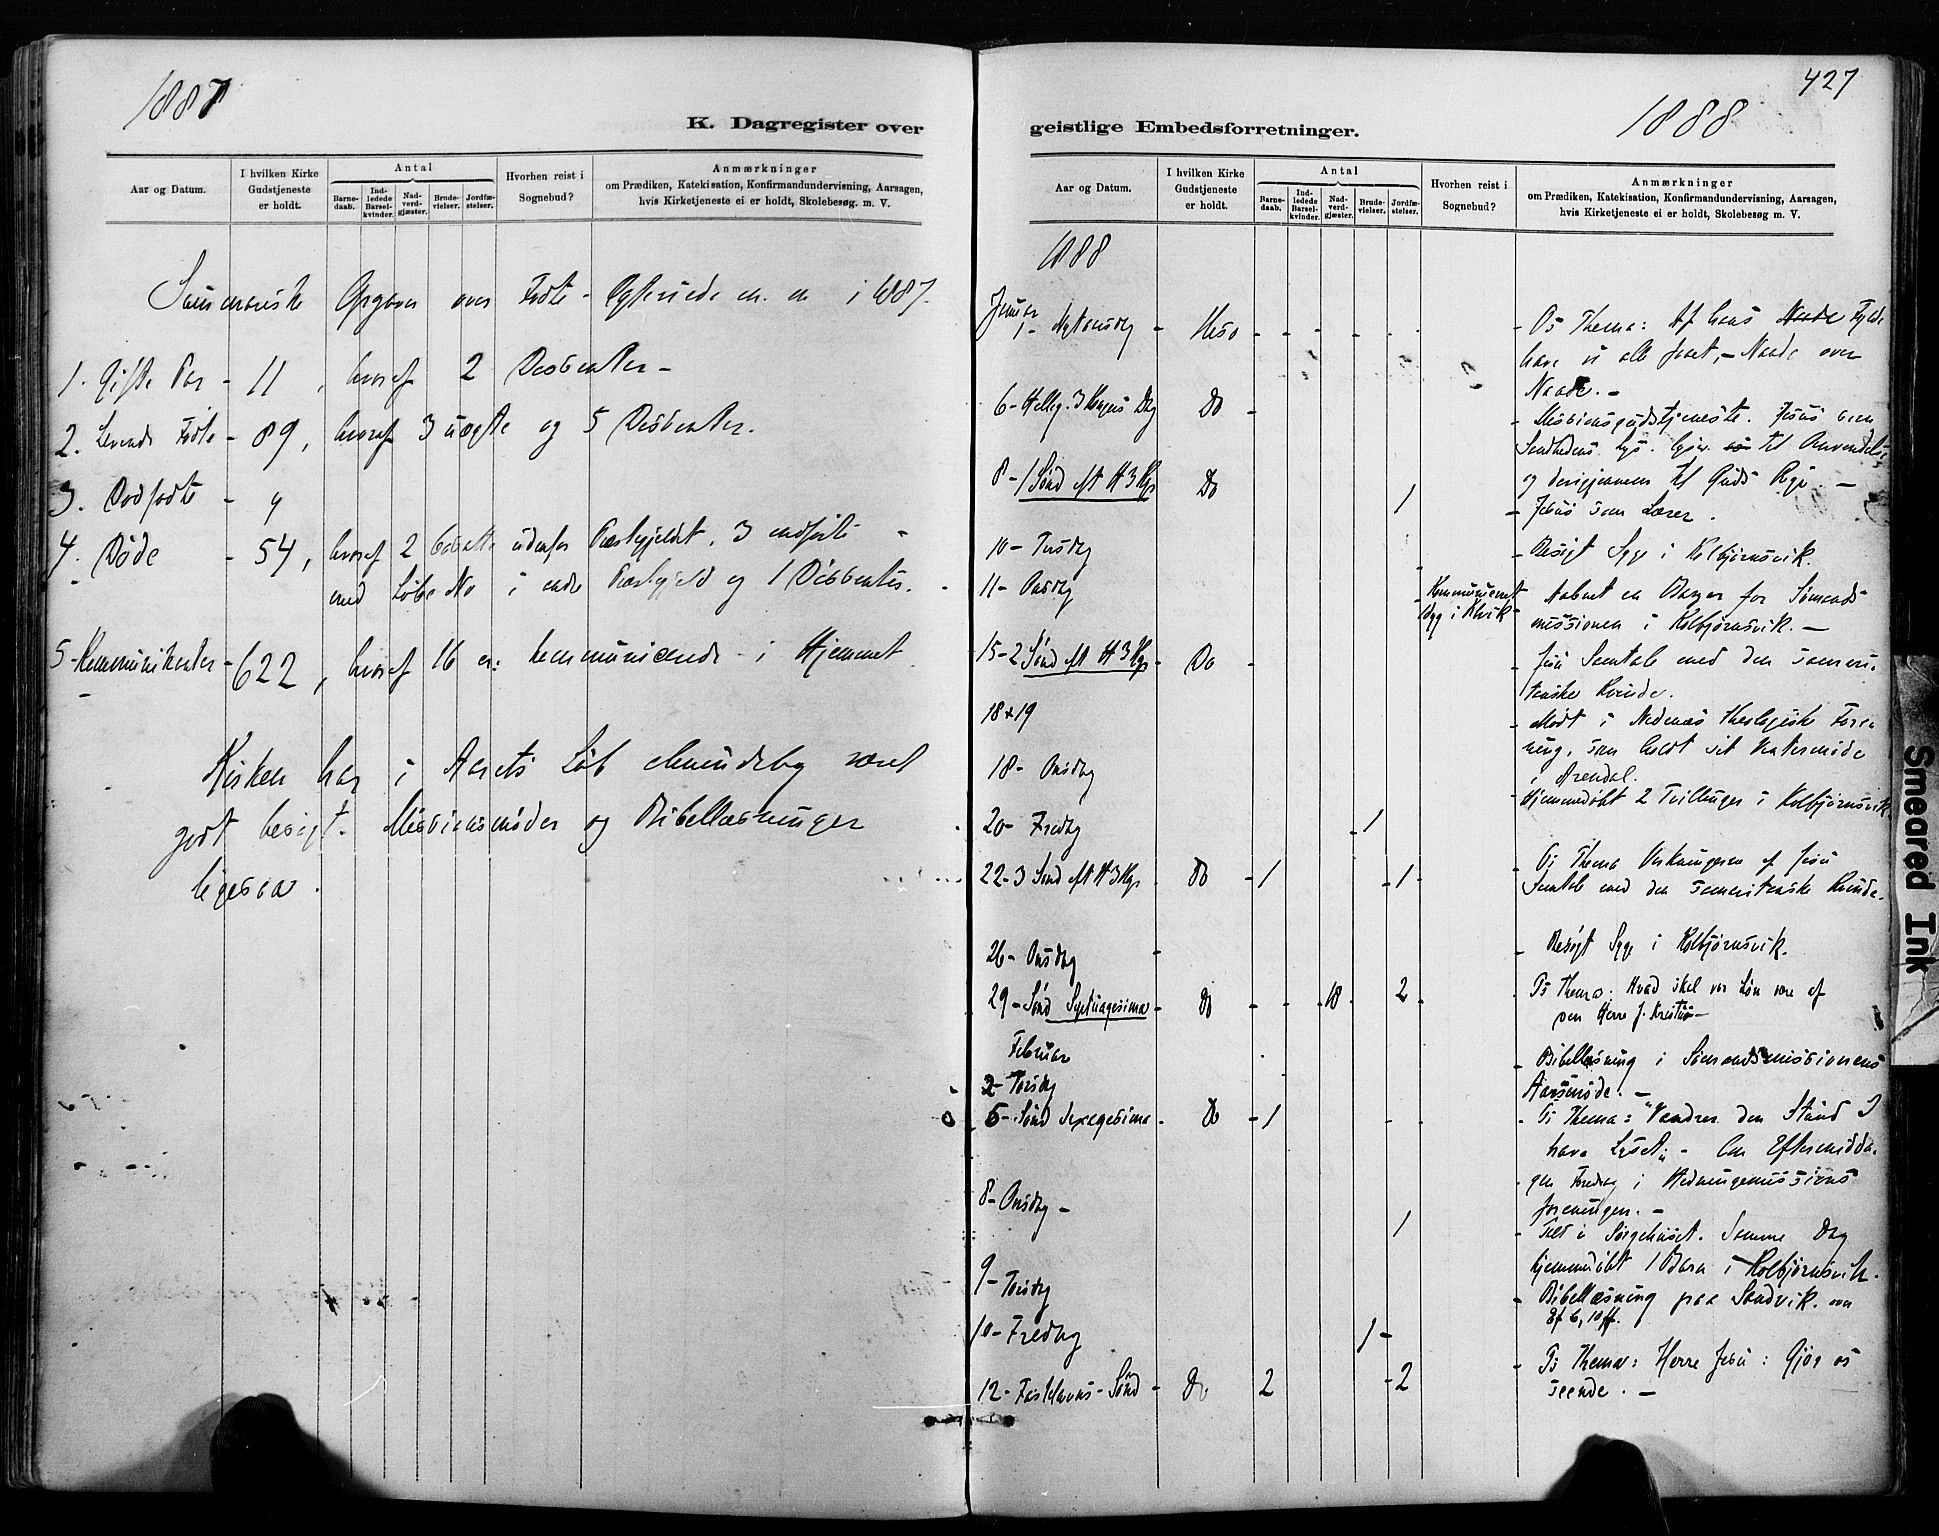 1887
K. Dagregister over
Aar og Datum.
I hvilken Kirke Gudstjeneste er holdt.
Antal
Barne-daab.
Ind-ledede Barsel-kvinder.
Nad-verd-gjæster.
Brude-vielser.
Jordfæ-stelser.
Hvorhen reist i Sognebud?
Anmærkninger
om Prædiken, Katekisation, Konfirmandundervisning, Aarsagen,
hvis Kirketjeneste ei er holdt, Skolebesøg. m. V.
Summariske Opgaver over Fødte m. m. i 1887.
1. Gifte Par - 11, hvoraf 2 Dissenter -
2. Levende Fødte - 89, hvoraf 3 uægte og 5 Dissenter.
3. Dødfødte - 4
4. Døde - 54, hvoraf 2 udenfor Præstegjeldet, 3 indførte -
med Løbe No i andre Præstegjeld og 1 Dissenter.
5 - Kommunikanter - 622, hvoraf 16 er kommunicerede i Hjemmet
Kirken har i Aarets Løb været
godt besøgt. Missionsmøder og Bibellæsninger
ligesaa.
427
1888
geistlige Embedsforretninger.
Aar og Datum.
I hvilken Kirke Gudstjeneste er holdt.
Antal
Barne-daab.
Ind-ledede Barsel-kvinder.
Nad-verd-gjæster.
Brude-vielser.
Jordfæ-stelser.
Hvorhen reist i Sognebud?
Anmærkninger
om Prædiken, Katekisation, Konfirmandundervisning, Aarsagen,
hvis Kirketjeneste ei er holdt, Skolebesøg m. V.
1888
Januar
1 - Nytaarsdag - Hisø - Thema: Af hans Naade Fylde
have vi alle faaet, - Naade over
Naade. -
6 - Hellig. 3 Kongers Dag Do - Missionsgudstjeneste. Jesus som
Sandhedens Lys. til Anvendelse
og derigjennem til Guds Rige -
8 - 1 Sønd eft H 3 Kgr Do 1 - Jesus som Lærer.
10 - Tirsdag - Besøgt Syge i Kolbjørnsvik.
11 - Onsdag Kommunicant - Aabnet en Bazar for Sømands
Syg i Kolvik - missionen i Kolbjørnsvik. -
15 - 2 Sønd eft H 3 Kgr - Do - Jesu Samtale med den samari-
tanske Kvinde.
18 & 19 - Mødt i Nedenæs theologiske Fore-
ning, som holdt sit Vintermøde
i Arendal.
18 - Onsdag - Hjemmedøbt 2 Tvillinger i Kolbjørnsvik
20 - Fredag 1
22 - 3 Sønd eft H 3 Kgr - Do - 1 - 1 - Thema Virkningerne af Jesu
Samtale med den samaritanske Kvinde.
26 - Onsdag - Besøgt Syge i Kolbjørnsvik.
29 - Sønd Septuagesima - Do - 18 - 2 - Thema: Hvad skal vor Løn være af
vor Herre J. Kristus -
Februar
2 - Torsdag - Bibellæsning i Sømandsmissionens
Aarsmøde. -
5 - Sønd Sexagesima - Do - 1 - Thema: "Vandrer den Stund I
have Lyset" - Om Eftermidda-
gen Foredrag i Hedningemissions
foreningen. -
8 - Onsdag - 1 - Talt i Sørgehuset. Samme Dag
hjemmedøbt 1 Barn i Kolbjørnsvik.
9 - Torsdag - Bibellæsning paa Sandvik. over
Ef 6, 10 ff.
10 - Fredag 1 -
12 - Fastelavns - Sønd - Do 2 - 2 - Thema: Herre Jesu: Gjør os
seende. -
Smeared Ink